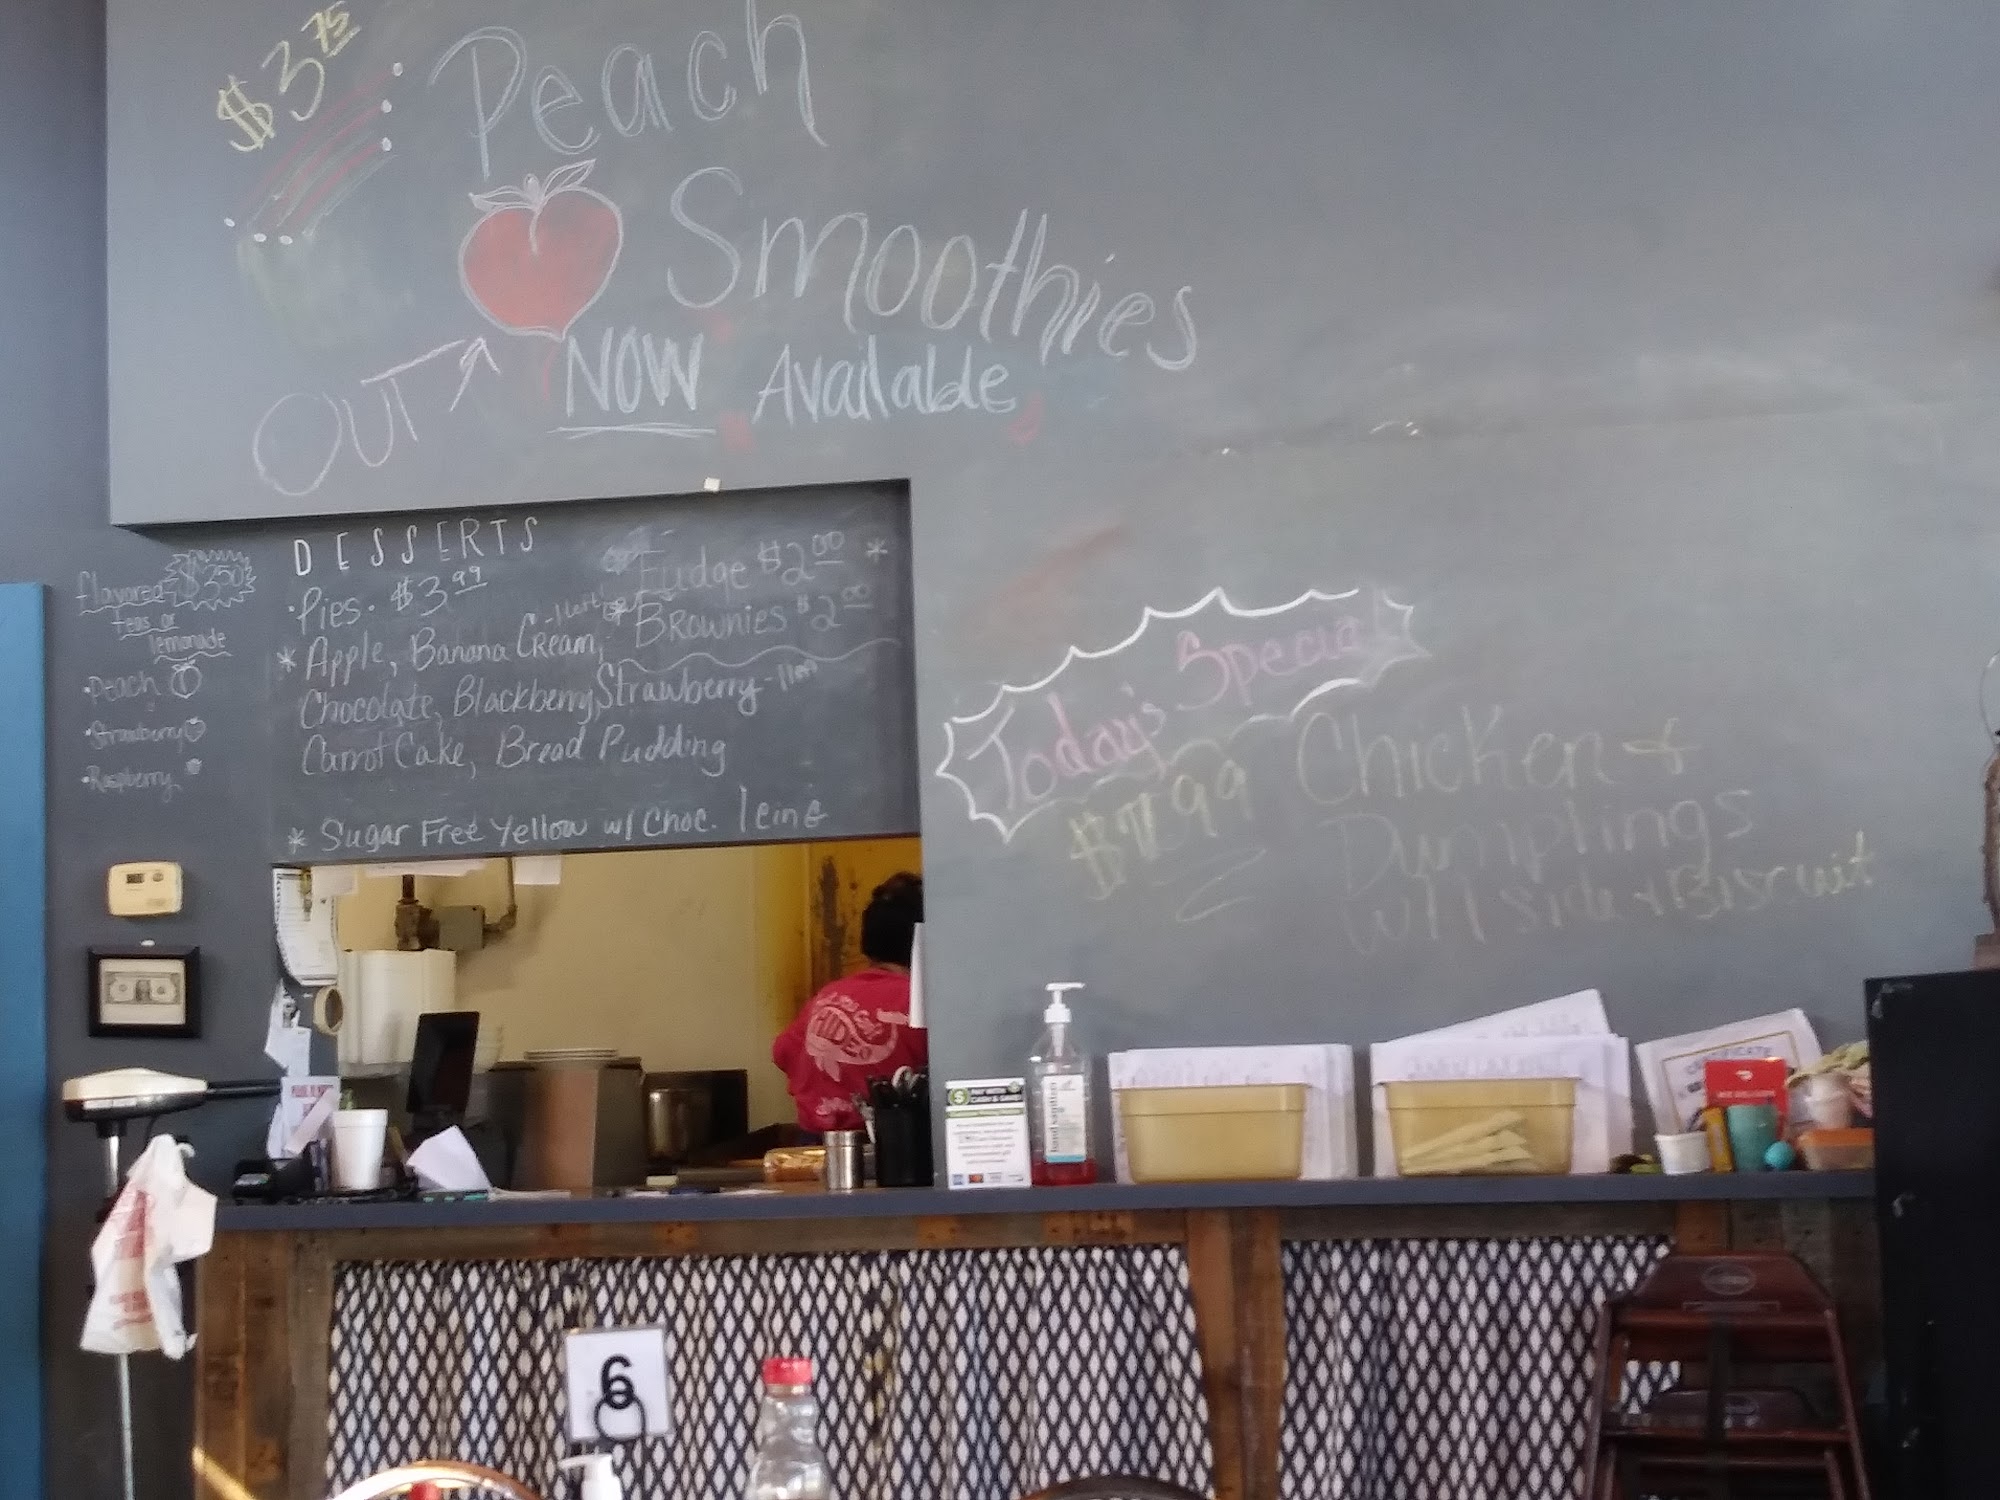 $3.75
Peach
Smoothies
OUT
NOW Available
DESSERTS
Fudge $2.00 *
• Pies • $3.99
* Brownies $2.00
* Apple, Banana Cream, -1 left
Chocolate, Blackberry, Strawberry - 1 left
Carrot Cake, Bread Pudding
* Sugar Free Yellow w/ Choc. Icing
flavored $3.50
teas or
lemonade
• Peach
• Strawberry
• Raspberry
Today's Special
$7.99 Chicken &
Dumplings
w/ 1 side & Biscuit
HIDEO
CASH & SAVE!
hand sanitizer
CERTIFICATE
6